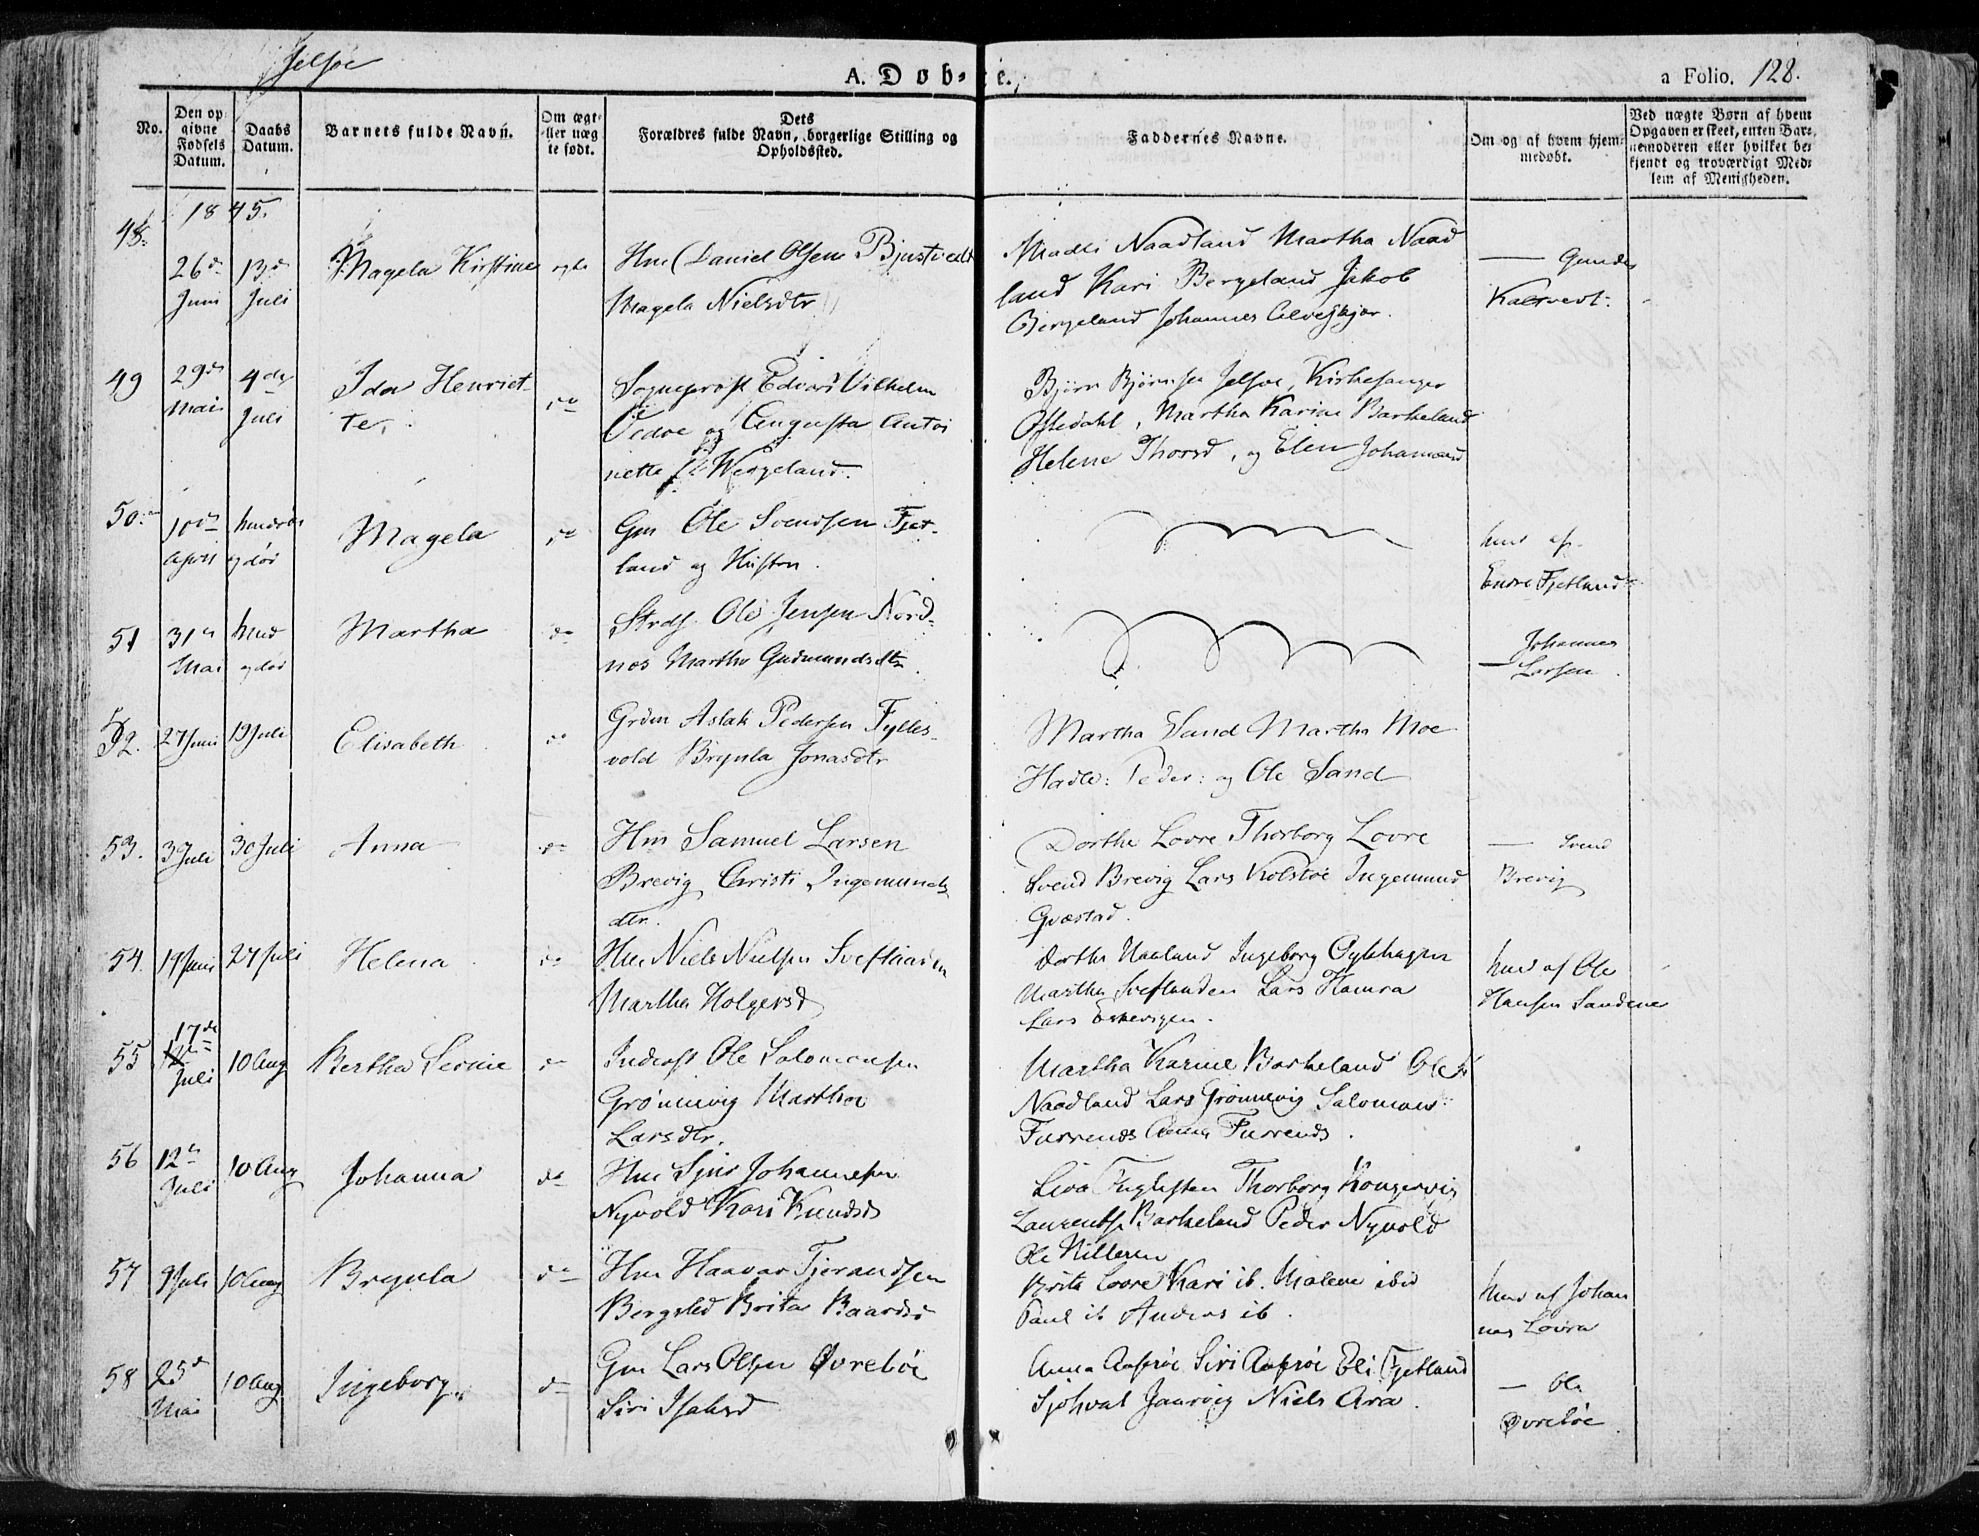 Jelsøe
A. Døbte.
a Folio. 128.
No.
Den opgivne Fødsels Datum.
Daabs Datum.
Barnets fulde Navn.
Om ægte eller uægte født.
Dets
Forældres fulde Navn, borgerlige Stilling og
Opholdssted.
Faddernes Navne.
Om og af hvem hjemmedøbt.
Ved uægte Børn af hvem
Opgaven er skeet, enten Bar-
nemoderen eller hvilket be-
kjendt og troværdigt Med-
lem af Menigheden.
1845.
48. 26de Juni 13de Juli Magela Kirstine ægte
Hm Daniel Olsen
Magela Nielsdtr
Madli Naadland Martha Naad
land Kari Bergeland Jakob
Bergeland Johannes
49 29de Mai 4de Juli Ida Henriet-
te, do
Sogneprest Edvard Vilhelm
og Augusta Antoi
nette f. Wergeland.
Bjørn Bjørnsen Jelsøe, Kirkesanger
Oftedahl, Martha Karine Barkeland
Helene Thorsd, og Elen Johannesd
50. 10de April hmdøbt og død Magela do
Gm Ole Svendsen Fjet-
land og Hustru.
hmd af
Endre Fjetland
51 31te Mai hmd og død Martha do
Ole Jensen Nord-
nes Martha Gudmundsdtr.
Johannes
Larsen
52. 27 Juni 19 Juli Elisabeth do
Grdm Aslak Pedersen Fylles-
vold Brynla Jonasdtr
Martha Sand Martha Moe
Hadle: Peder: og Ole Sand
53. 3 Juli 30 Juli Anna do
Hm Samuel Larsen
Brevig Christi Ingemunds
dtr.
Dorthe Lovre Thorborg Lovre
Svend Brevig Lars Kolstøe Ingemund
Gvæstad.
— Svend
Brevig
54. 19 Juni 27 Juli Helena do
Hm Niels Nielsen
Martha Holgersd
Dorthe Ingeborg
Martha Lars Hamra
Lars
hmd af Ole
Hansen Sandene
55 17de Juli 10 Aug Bertha Serine do
Inderst Ole Salomonsen
Grønnevig Martha
Larsdtr.
Martha Karine Barkeland Ole
Naadland Lars Grønnevig Salomon
Furrenes Anna Furrenes.
56 12te Juli 10 Aug Johanna do
Hm Sjur Johannesen
Nyvold Kari Knudsd
Liva Thorborg Kongevig
Laurents Barkeland Peder Nyvold
Ole
57 9 Juli 10 Aug Brynla do
Hm Haavar Tjerandsen
Bergsted Brita Baardsd
Brita Lovre Kari ib. Malene ibid
Paul ib Anders ib.
hmd af Johan
nes Lovra
58 25de Mai 10 Aug Ingeborg. do
Gm Lars Olsen Øvrebøe
Siri Isaksd
Anna Siri Eli Fjetland
Sjohvat Niels Ara.
— Ole
Øvrebøe